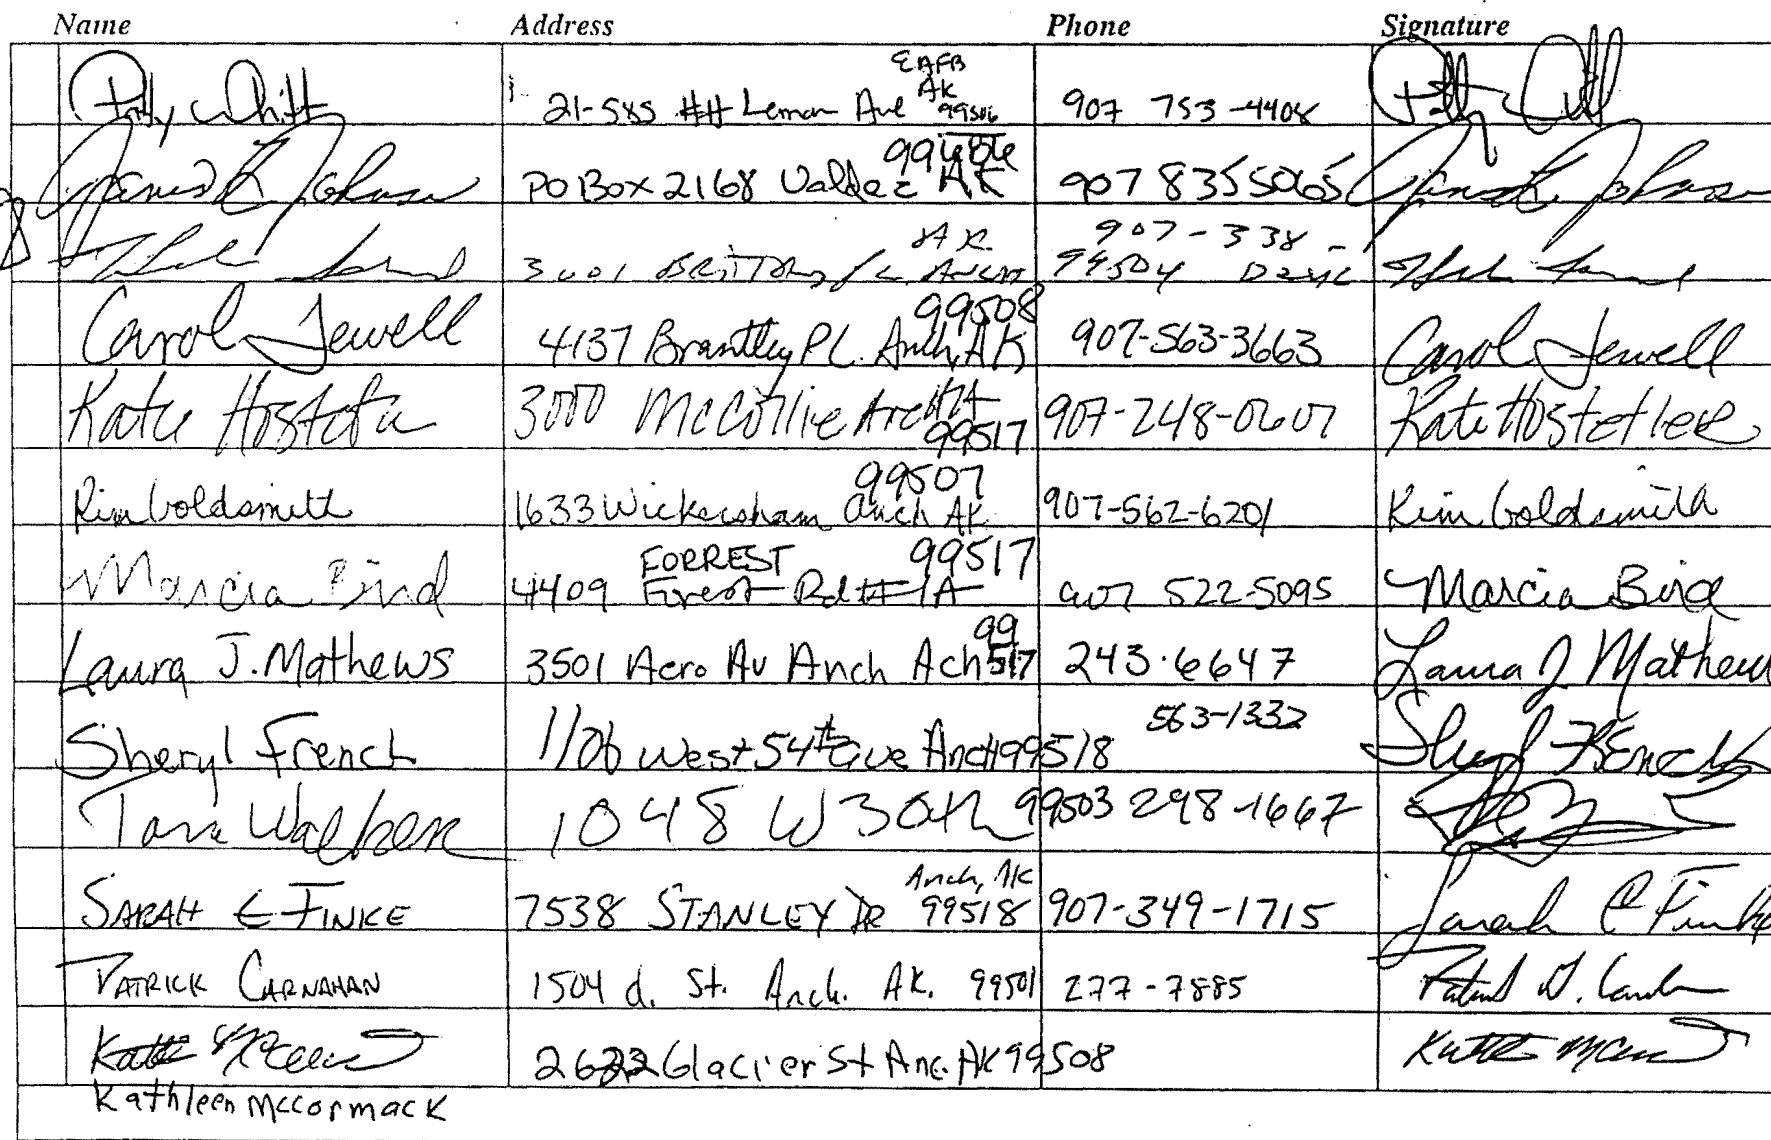 Name Address Phone Signature
Patty Whitt 21-585 ## Leman Ave EAFB AK 99506 907 753-4408
James K Johnson PO Box 2168 Valdez AK 99686 907 835 5065 James K. Johnson
3001 AK 99504 907-338-
Carol Jewell 4137 Brantley PL. Anch, AK 99508 907-563-3663 Carol Jewell
Kate Hostetler 3000 McCollie 99517 907-248-0607 Kate Hostetler
Kim Goldsmith 1633 Wickersham Anch AK 99507 907-562-6201 Kim Goldsmith
Marcia Bird 4409 FORREST Forest Rd #1A 99517 907 522-5095 Marcia Bird
Laura J. Mathews 3501 Aero Av Anch Ach 99517 243-6647 Laura J Mathews
Sheryl French 1106 West 54th ave Anch 99518 563-1332 Sheryl French
Tara Walker 1048 W 30th 99503 298-1667
SARAH E FINKE 7538 STANLEY DR Anch, AK 99518 907-349-1715 Sarah E Finke
PATRICK CARNAHAN 1504 d. St. Anch. AK. 99501 277-7885
2622 Glacier St Anc. AK 99508
Kathleen McCormack